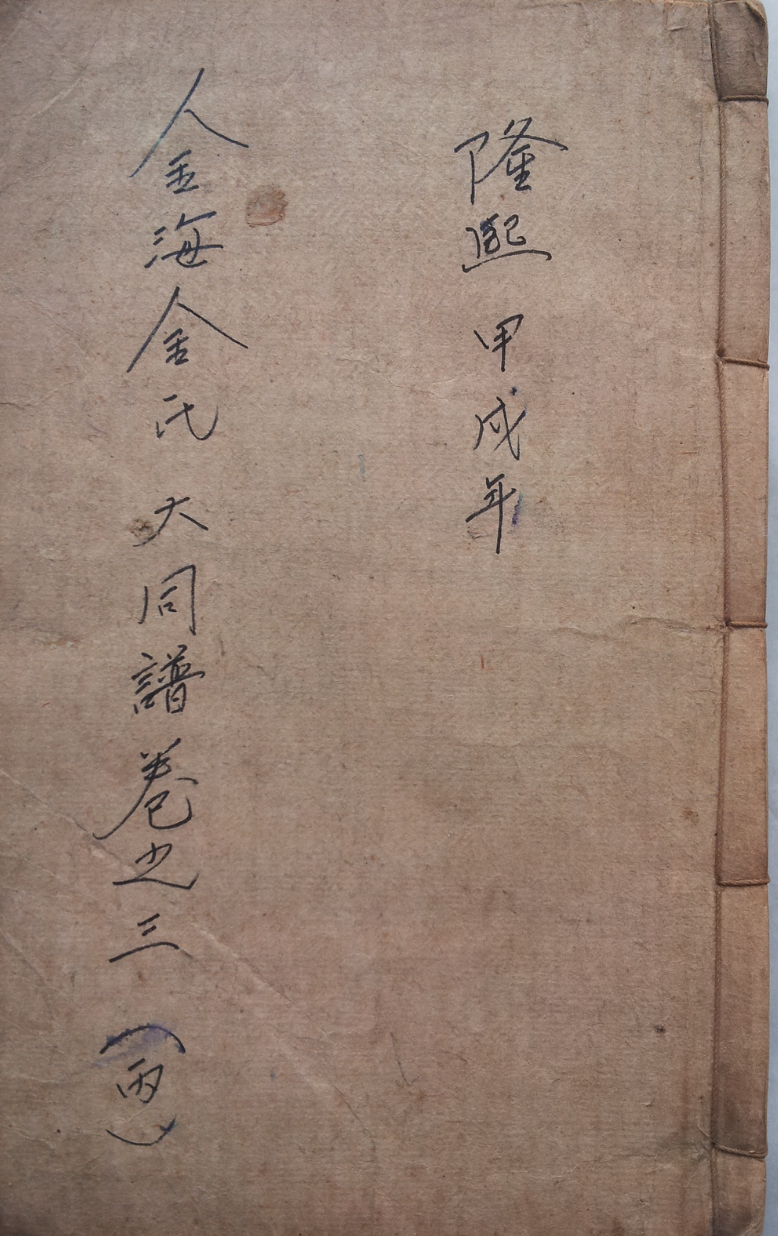 隆熙 甲戌年
金海金氏 大同譜卷之三 (丙)